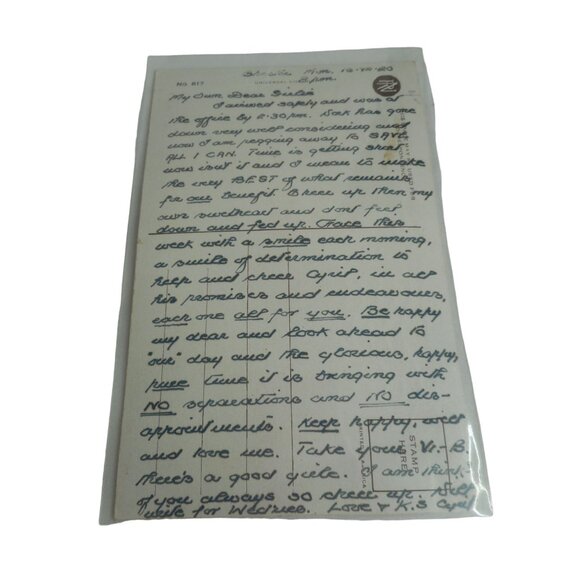 No 817
My Own Dear
I arrived safely and was at
the office by 2.30pm. has gone
down very well considering and
now I am pegging away to SAVE
ALL I CAN. Time is getting short
now isn't it and I mean to make
the very BEST of what remains
for our benefit. Cheer up then my
own sweetheart and dont feel
down and fed up. Face this
week with a smile each morning,
a smile of determination to
help and cheer Cyril, in all
his promises and endeavours,
each one all for you. Be happy
my dear and look ahead to
"our" day and the glorious, happy,
time it is bringing with
NO separations and NO dis-
appointments. Keep happy, well
and love me. Take your Vi. B.
there's a good girlie. I am think.
of you always so cheer up. Will
write for Wednes. Love & K.S Cyril
STAMP
HERE